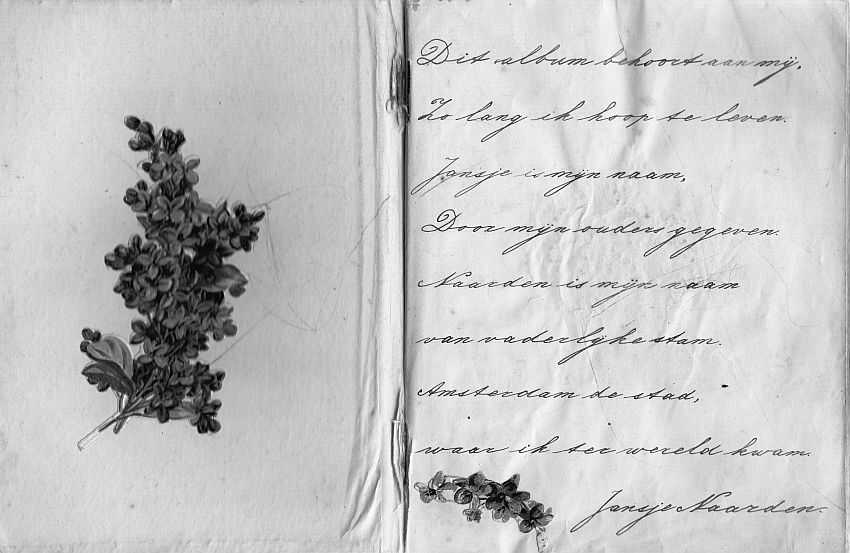 Dit album behoort aan mij.
Zo lang ik hoop te leven.
Jansje is mijn naam,
Door mijn ouders gegeven.
Naarden is mijn naam
van vaderlijke stam.
Amsterdam de stad,
waar ik ter wereld kwam.
Jansje Naarden.